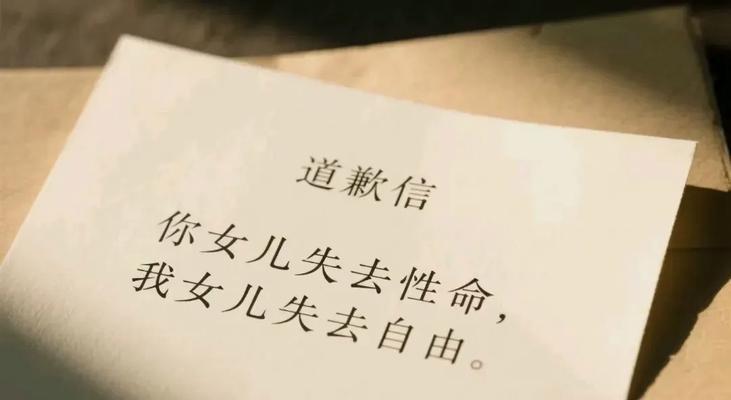 道歉信
你女儿失去性命，
我女儿失去自由。